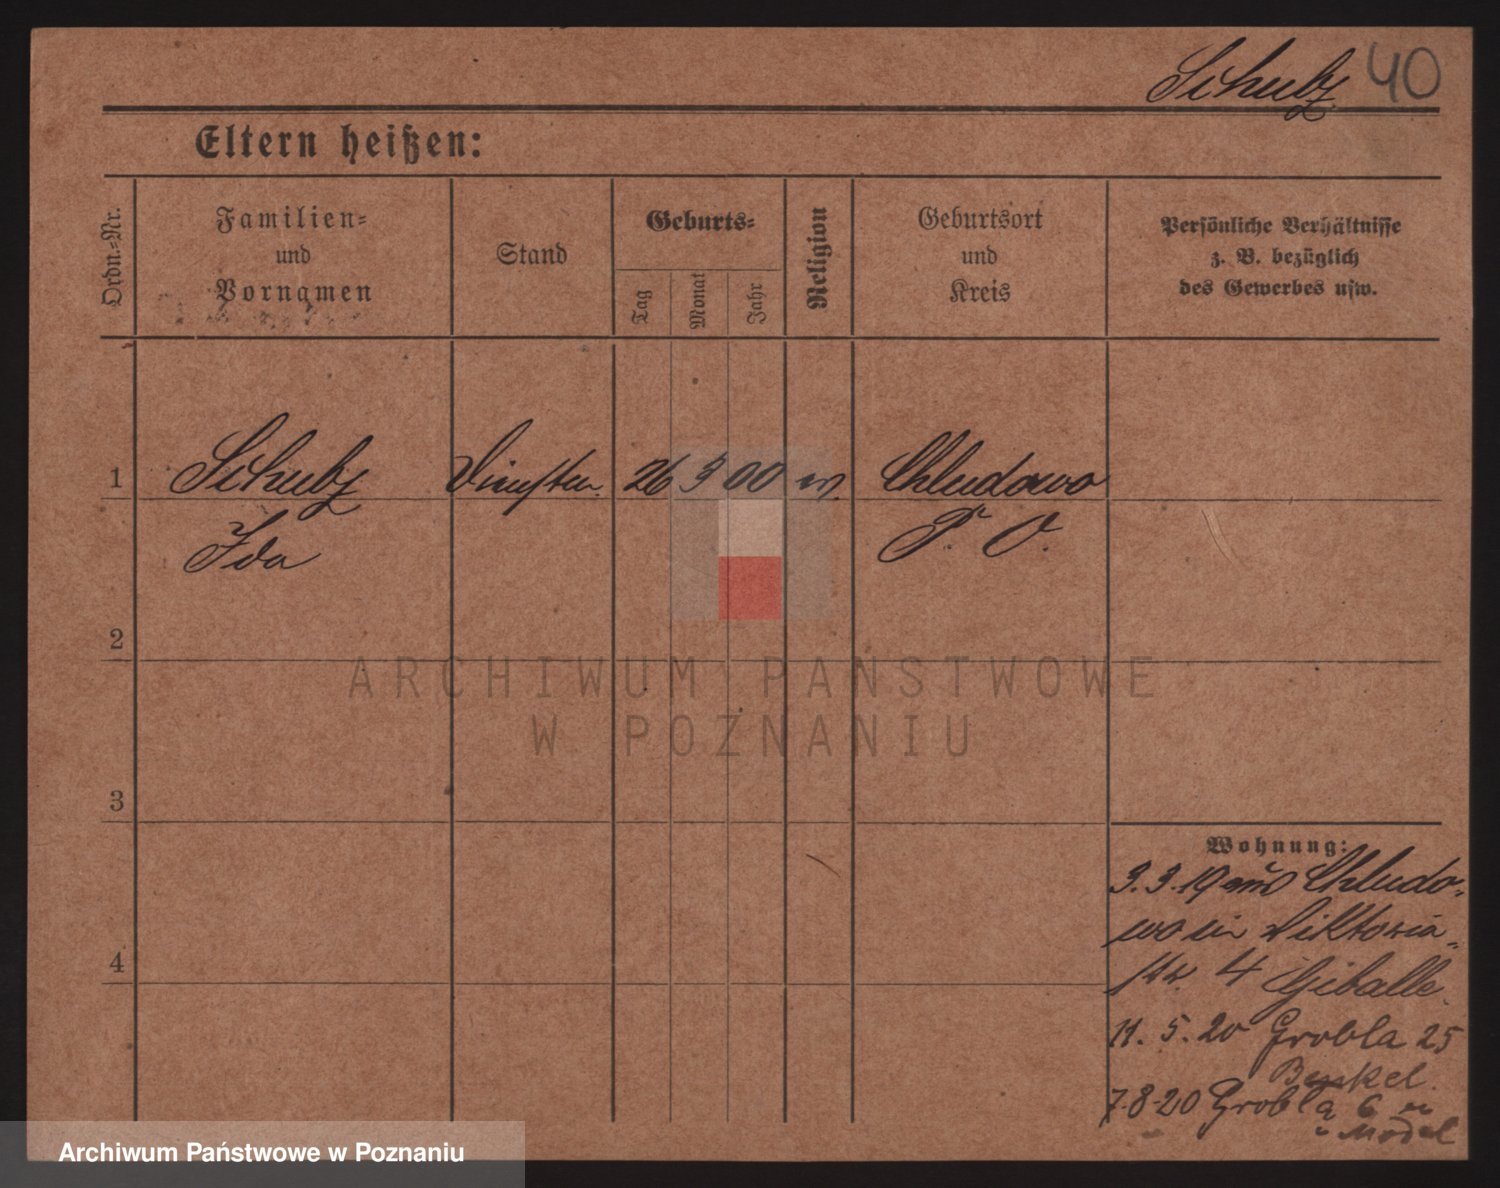 Schulz 40
Eltern heißen:
Ordn.-Nr.
Familien-
und
Vornamen
Stand
Geburts-
Tag
Monat
Jahr
Religion
Geburtsort
und
Kreis
Persönliche Verhältnisse
z. B. bezüglich
des Gewerbes usw.
1 Schulz 26 3 00 Chludowo
Ida P. O.
2
3
4
ARCHIWUM PANSTWOWE
W POZNANIU
Wohnung:
3.3.19 aus Chludo-
wo in Viktoria-
str. 4
11.5.20 Grobla 25
7.8.20 Grobla 6
Archiwum Państwowe w Poznaniu